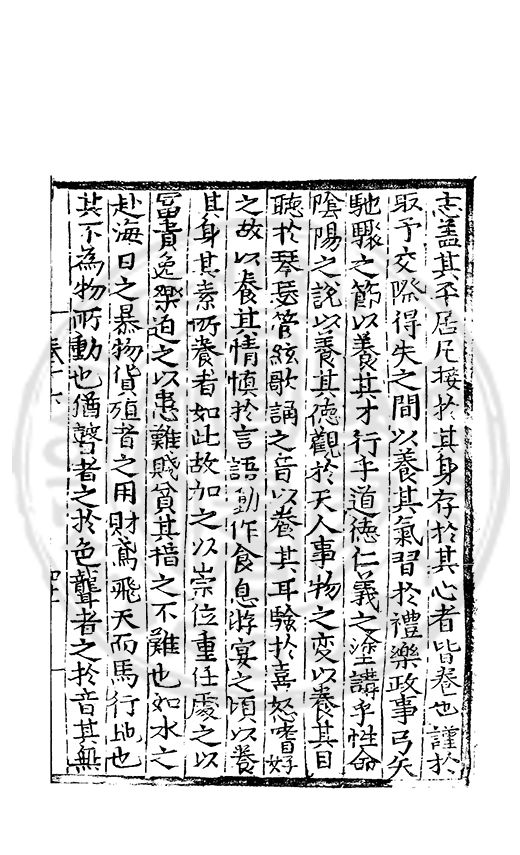 志盖其平居凡接於其身存於其心者皆養也謹於
取予交際得失之間以養其氣習於禮樂政事弓矢
馳驟之節以養其才行乎道德仁義之塗講乎性命
陰陽之說以養其德觀於天人事物之變以養其目
聽於琴瑟管絃歌誦之音以養其耳驗於喜怒嗜好
之故以養其情慎於言語動作食息游宴之頃以養
其身其素所養者如此故加之以崇位重任處之以
冨貴逸樂迫之以患難賤貧其措之不難也如水之
赴海日之暴物貨殖者之用財鳶飛天而馬行地也
其不為物所動也猶瞽者之於色聾者之於音其無